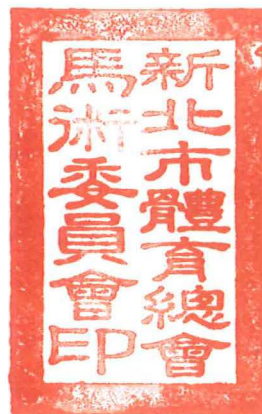 新北市體育總會
馬術委員會印